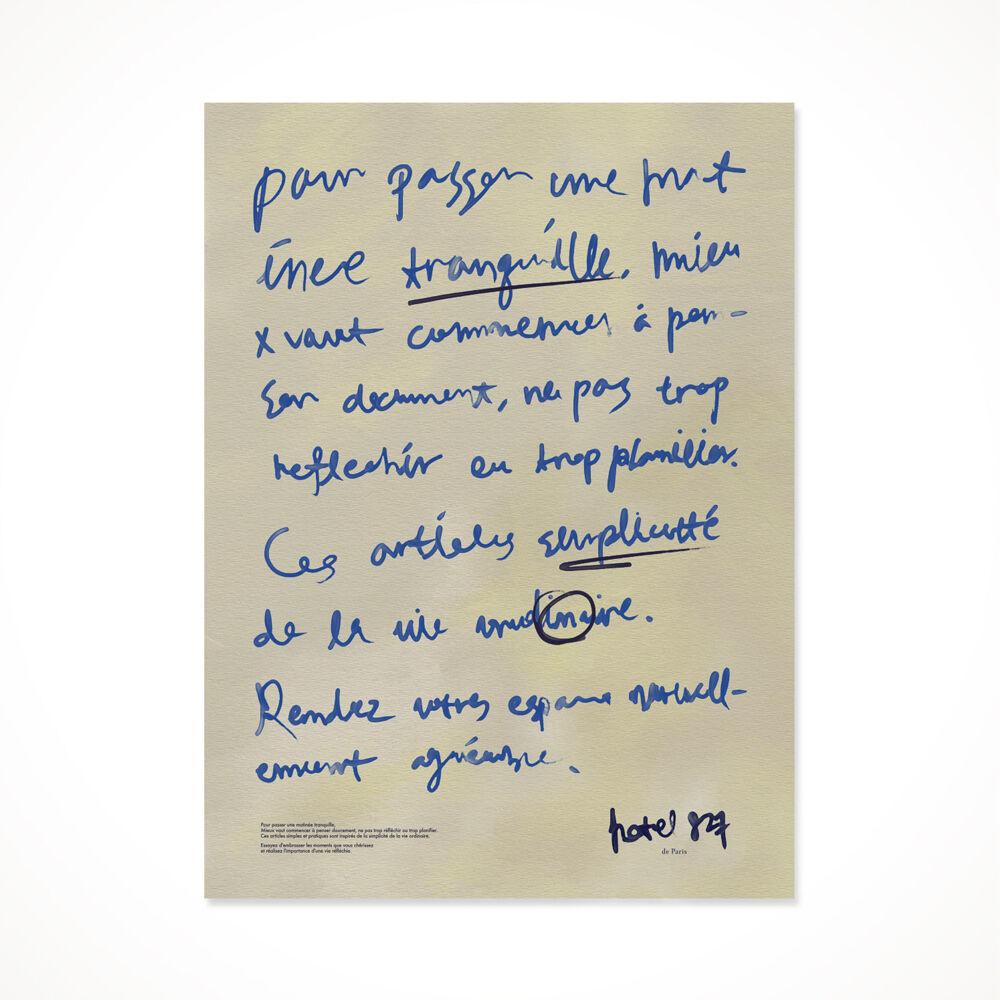 pour passer une mat
inee tranquille, mieu
x vaut commencer à pen-
ser doucement, ne pas trop
reflechir ou trop planifier.
Ces articles simplicité
de la vie ordinaire.
Rendez votres espace naturell-
ement agréable.
Pour passer une matinée tranquille,
Mieux vaut commencer à penser doucement, ne pas trop réfléchir ou trop planifier.
Ces articles simples et pratiques sont inspirés de la simplicité de la vie ordinaire.
Essayez d'embrasser les moments que vous chérissez
et réalisez l'importance d'une vie réfléchie.
hotel 827
de Paris